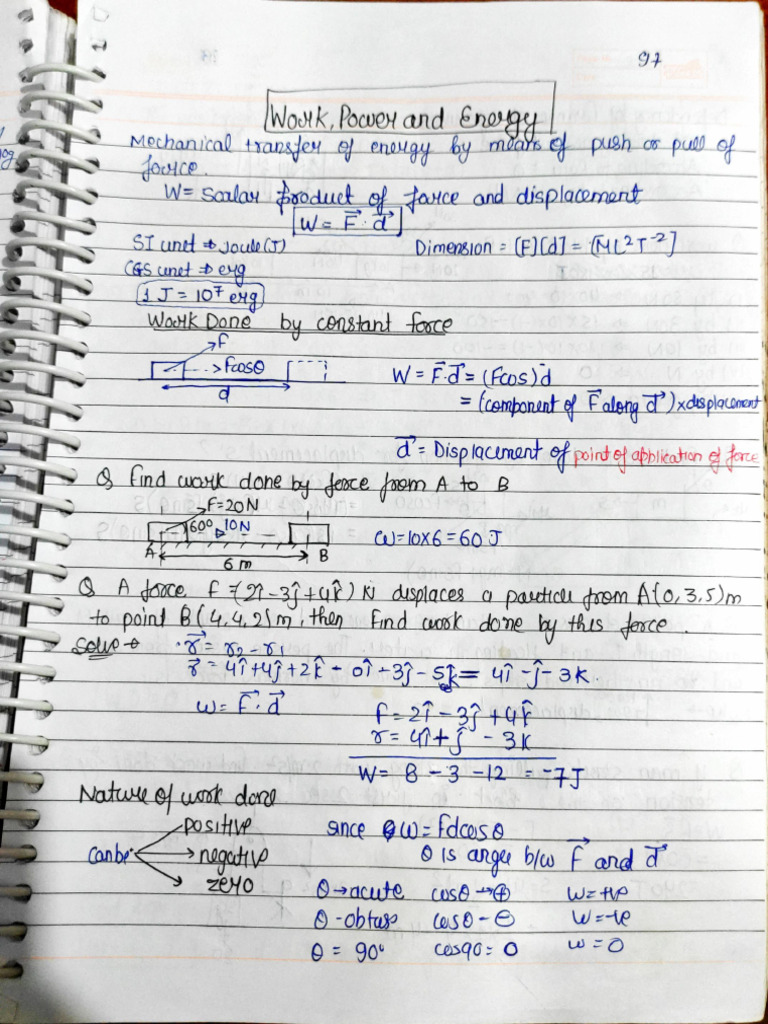 97
Work, Power and Energy
Mechanical transfer of energy by means of push or pull of
force.
W= Scalar product of force and displacement
W = F⃗ · d⃗
SI unit → Joule(J) Dimension = [F][d] = [ML²T⁻²]
CGS unit → erg
1 J = 10⁷ erg
Work Done by constant force
F
Fcosθ
d
W = F⃗·d⃗ = (Fcos)d
= (component of F⃗ along d⃗) x displacement
d⃗ = Displacement of point of application of force
Q Find work done by force from A to B
F=20N
60° 10N
A B
6 m
W=10x6 = 60 J
Q A force F = (2î - 3ĵ + 4k̂) N displaces a particle from A(0,3,5)m
to point B(4,4,2)m, then find work done by this force.
Solve → r⃗ = r₂ - r₁
r⃗ = 4î+4ĵ+2k̂ - 0î+3ĵ-5k̂ = 4î-ĵ-3k
W = F⃗·d⃗
F = 2î - 3ĵ + 4k̂
r = 4î + ĵ - 3k
W = 8 - 3 - 12 = -7J
Nature of work done
can be
positive
negative
zero
since W = Fdcosθ
θ is angle b/w F⃗ and d⃗
θ → acute cosθ → ⊕ W=+ve
θ - obtuse cosθ - ⊖ W=-ve
θ = 90° cos90 = 0 W = 0